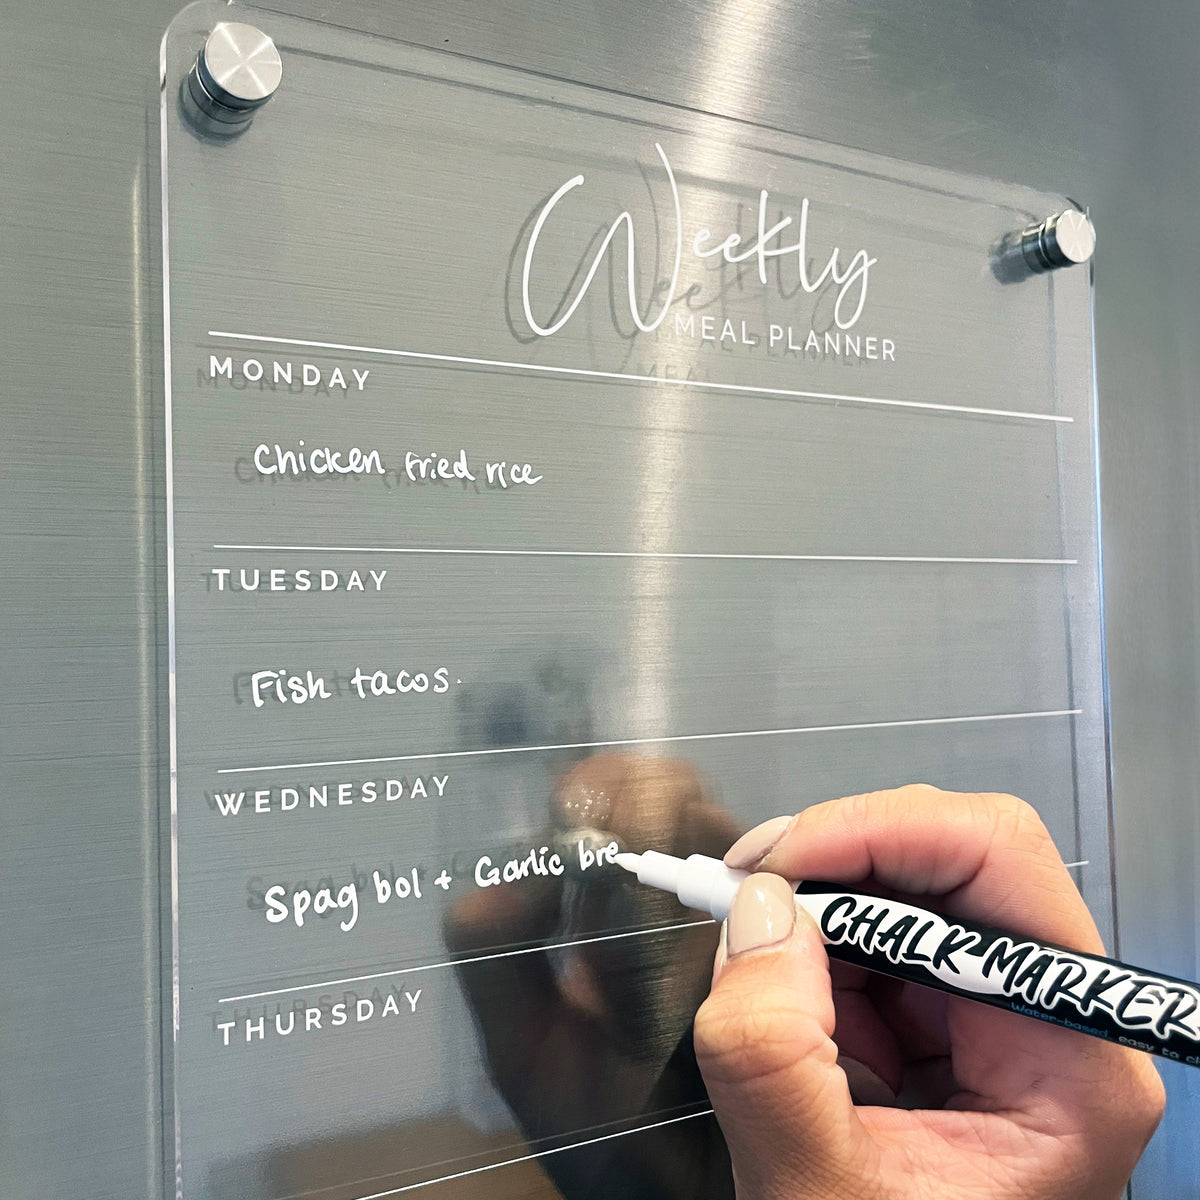 Weekly
MEAL PLANNER
MONDAY
Chicken fried rice
TUESDAY
Fish tacos.
WEDNESDAY
Spag bol + Garlic bre
THURSDAY
CHALK MARKER
Water-based, easy to cl